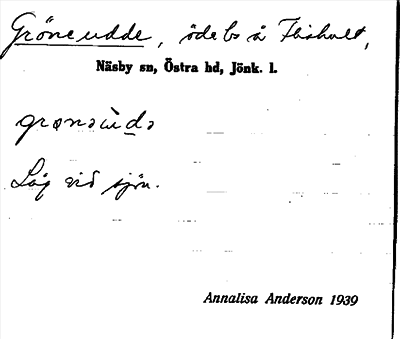 Gröneudde, ödebs å Fishult,
Näsby sn, Östra hd, Jönk. l.
grønəùdə
Låg vid sjön.
Annalisa Anderson 1939